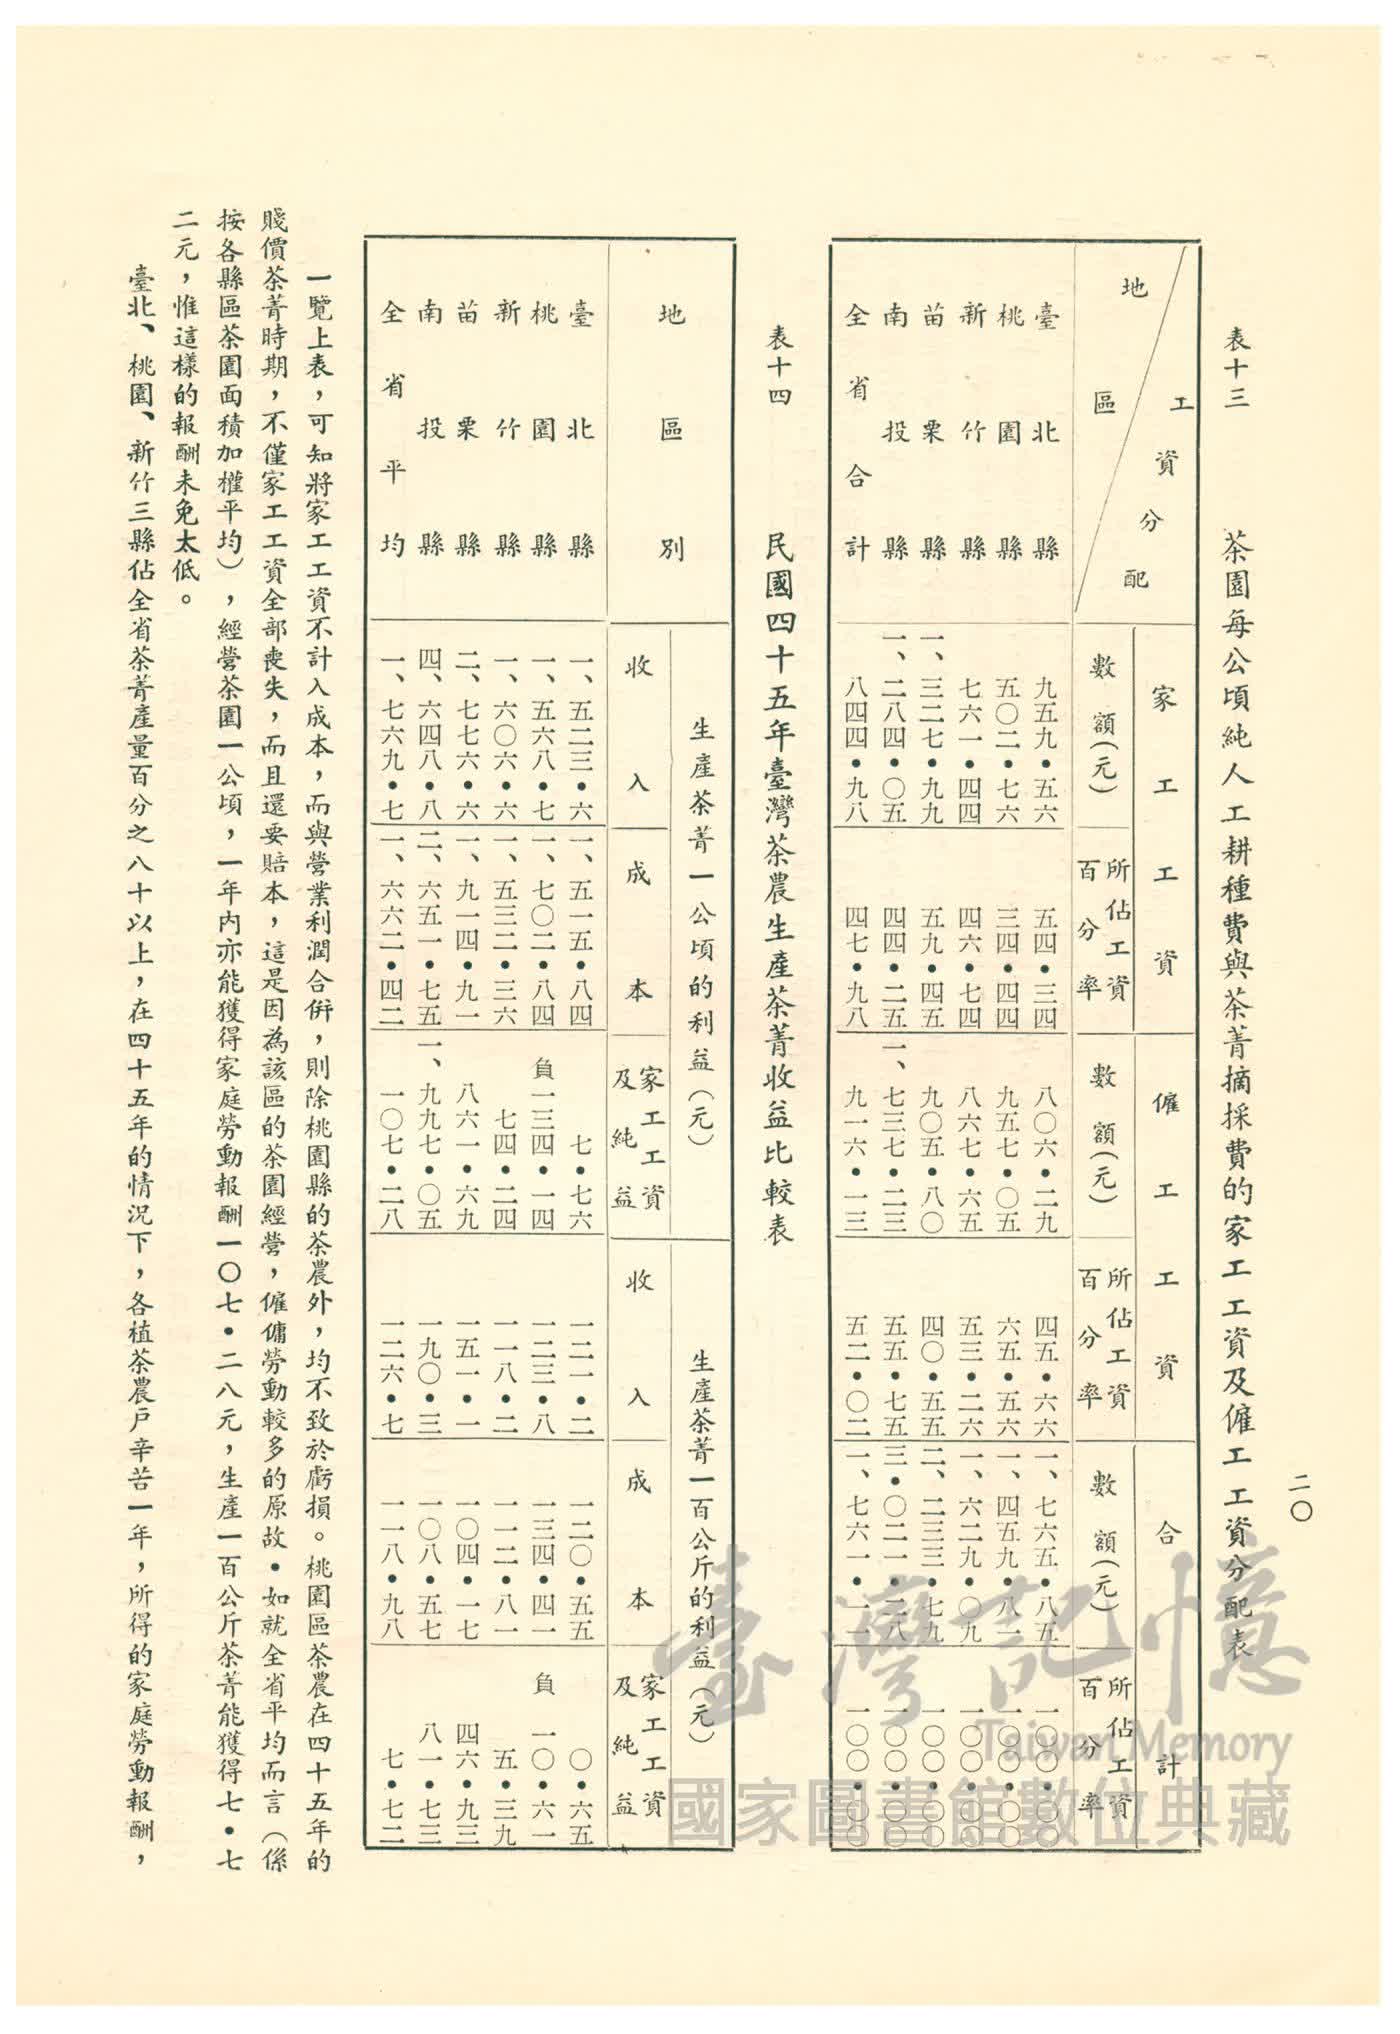 二〇
表十三　茶園每公頃純人工耕種費與茶菁摘採費的家工工資及僱工工資分配表
工資分配　家工資　僱工工資　合計
地區　數額(元)　所佔工資百分率　數額(元)　所佔工資百分率　數額(元)　所佔工資百分率
臺北縣　九五九•五六　五四•三四　八〇六•二九　四五•六六　一、七六五•八五　一〇〇•〇〇
桃園縣　五〇二•七六　三四•四四　九五七•〇五　六五•五六　一、四五九•八一　一〇〇•〇〇
新竹縣　七六一•四四　四六•七四　八六七•六五　五三•二六　一、六二九•〇九　一〇〇•〇〇
苗栗縣　一、三二七•九九　五九•四五　九〇五•八〇　四〇•五五　二、二三三•七九　一〇〇•〇〇
南投縣　一、二八四•〇五　四四•二五　一、七三七•二三　五五•七五　三•〇二一•二八　一〇〇•〇〇
全省合計　八四四•九八　四七•九八　九一六•一三　五二•〇二　一、七六一•一一　一〇〇•〇〇
表十四　民國四十五年臺灣茶農生產茶菁收益比較表
地區別　生產茶菁一公頃的利益(元)　生產茶菁一百公斤的利益(元)
收入　成本　家工工資及純益　收入　成本　家工工資及純益
臺北縣　一、五二三•六　一、五一五•八四　七•七六　一二一•二　一二〇•五五　〇•六五
桃園縣　一、五六八•七　一、七〇二•八四　負一三四•一四　一二三•八　一三四•四一　負一〇•六一
新竹縣　一、六〇六•六　一、五三二•三六　七四•二四　一一八•二　一一二•八一　五•三九
苗栗縣　二、七七六•六　一、九一四•九一　八六一•六九　一五一•一　一〇四•一七　四六•九三
南投縣　四、六四八•八　二、六五一•七五　一、九九七•〇五　一九〇•三　一〇八•五七　八一•七三
全省平均　一、七六九•七　一、六六二•四二　一〇七•二八　一二六•七　一一八•九八　七•七二
一覽上表，可知將家工工資不計入成本，而與營業利潤合併，則除桃園縣的茶農外，均不致於虧損。桃園區茶農在四十五年的
賤價茶菁時期，不僅家工工資全部喪失，而且還要賠本，這是因為該區的茶園經營，僱傭勞動較多的原故•如就全省平均而言（係
按各縣區茶園面積加權平均），經營茶園一公頃，一年內亦能獲得家庭勞動報酬一〇七•二八元，生產一百公斤茶菁能獲得七•七
二元，惟這樣的報酬未免太低。
臺北、桃園、新竹三縣佔全省茶菁產量百分之八十以上，在四十五年的情況下，各植茶農戶辛苦一年，所得的家庭勞動報酬，
臺灣記憶
Taiwan Memory
國家圖書館數位典藏